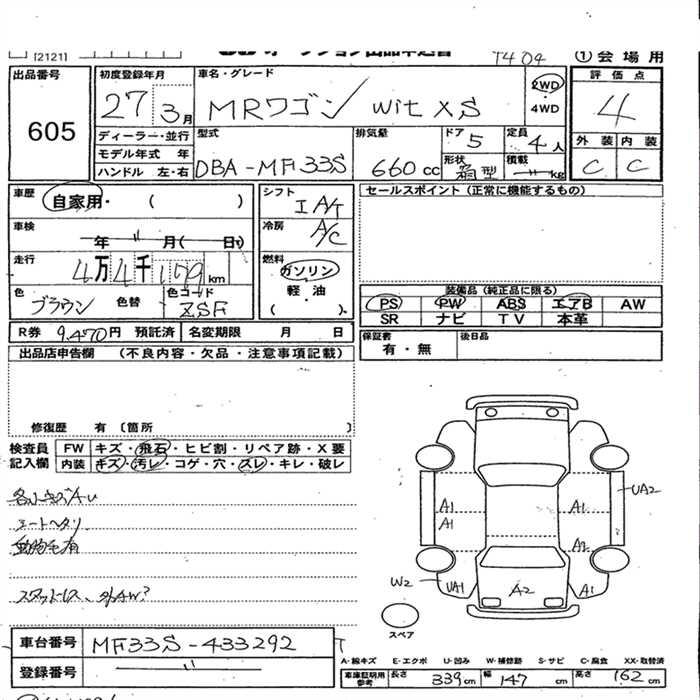 [2121]
①会場用
出品番号
605
初度登録年月
27 3月
車名・グレード
MRワゴン Wit XS
2WD
・
4WD
評価点
4
ディーラー・並行
モデル年式 年
ハンドル 左・右
型式
DBA-MF33S
排気量
660cc
ドア
5
定員
4人
形状
箱型
積載
kg
外装 内装
C C
車歴
自家用・( )
シフト
IAT
セールスポイント (正常に機能するもの)
車検
年 月( 日)
冷房
A/C
走行
4万4千179km
燃料
ガソリン
軽・油
( )
色
ブラウン
色替
色コード
ZSF
装備品 (純正品に限る)
PS PW ABS エアB AW
SR ナビ TV 本革
R券 9,470円 預託済 名変期限 月 日
保証書
有・無
後日品
出品店申告欄 (不良内容・欠品・注意事項記載)
修復歴 有〔箇所 〕
検査員
記入欄
FW キズ・飛石・ヒビ割・リペア跡・X要
内装 キズ・汚レ・コゲ・穴・スレ・キレ・破レ
各小キズAU
シートヘタリ
動物毛有
スタッドレス、
A1
A1
A1
A2
UA2
W2
UA1
A2
A1
スペア
車台番号 MF33S-433292
登録番号
A-線キズ E-エクボ U-凹み W-補修跡 S-サビ C-腐食 XX-取替済
車庫証明用
参考
長さ 339cm 幅 147cm 高さ 162cm